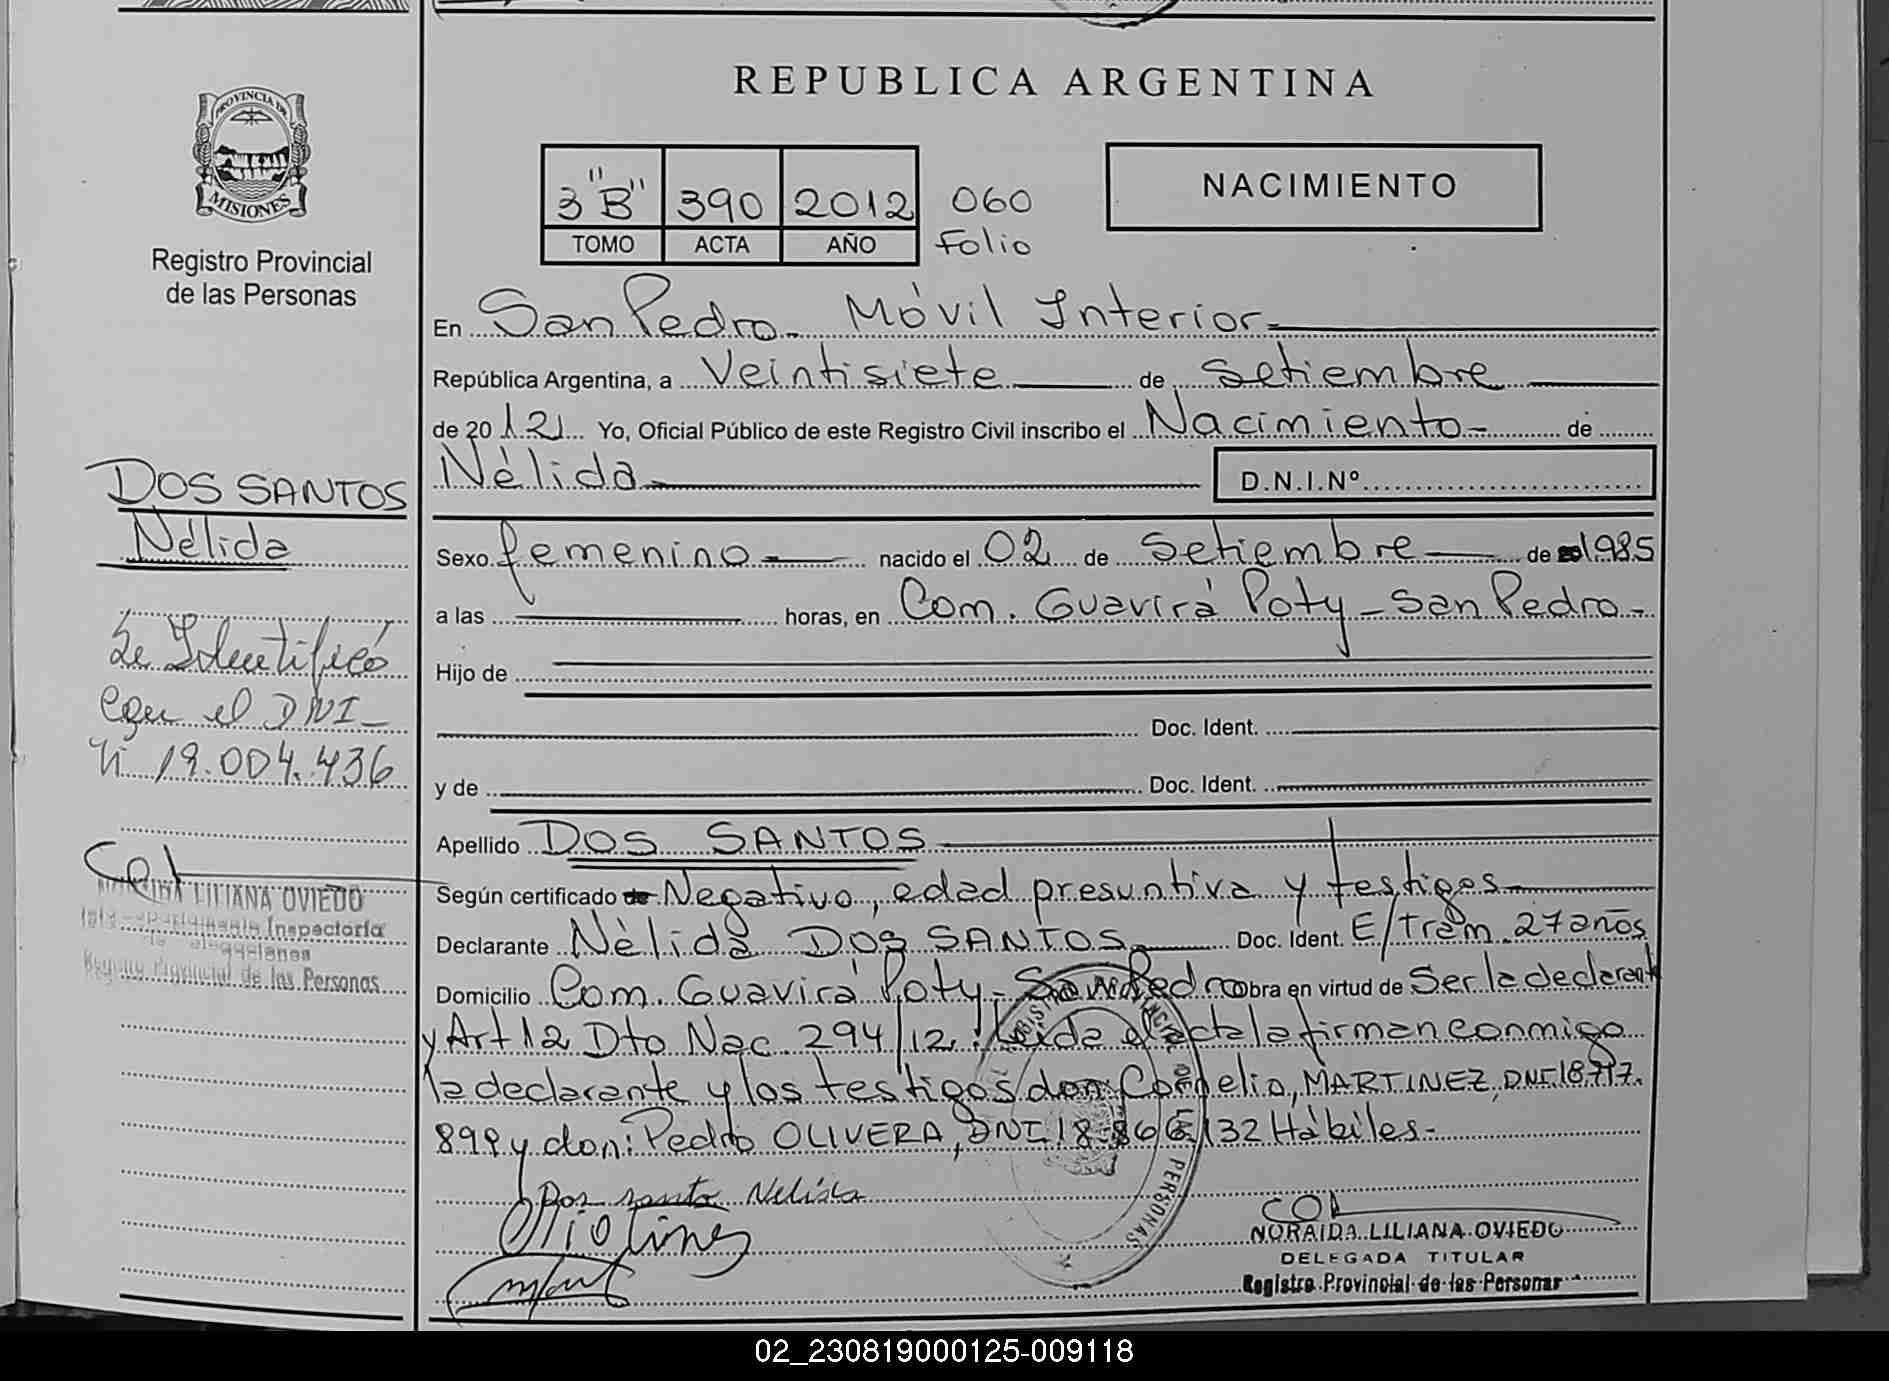 REPUBLICA ARGENTINA
PROVINCIA DE
MISIONES
Registro Provincial
de las Personas
3 "B" 390 2012 060
TOMO ACTA AÑO Folio
NACIMIENTO
En San Pedro - Móvil Interior
República Argentina, a Veintisiete de Setiembre
de 20 12 Yo, Oficial Público de este Registro Civil inscribo el Nacimiento de
Nélida D.N.I.Nº
Sexo femenino nacido el 02 de Setiembre de 1985
a las horas, en Com. Guavirá Poty - San Pedro -
Hijo de
Doc. Ident.
y de Doc. Ident.
Apellido DOS SANTOS
Según certificado de Negativo, edad presuntiva y testigos
Declarante Nélida DOS SANTOS Doc. Ident. E/Trám. 27 años
Domicilio Com. Guavirá Poty - San Pedro obra en virtud de Ser la declarante
y Art 12 Dto Nac. 294/12. Leída el acta la firman conmigo
la declarante y los testigos don: Cornelio, MARTINEZ, DNI.18.717.
899 y don: Pedro OLIVERA, DNI 18.866.132 Hábiles-
Dos santo Nelida
NORAIDA LILIANA OVIEDO
DELEGADA TITULAR
Registro Provincial de las Personas
DOS SANTOS
Nélida
Se Identificó
con el DNI -
Nº 19.004.436
NORAIDA LILIANA OVIEDO
Inspectoría
Registro Provincial de las Personas
PERSONAS
02_230819000125-009118